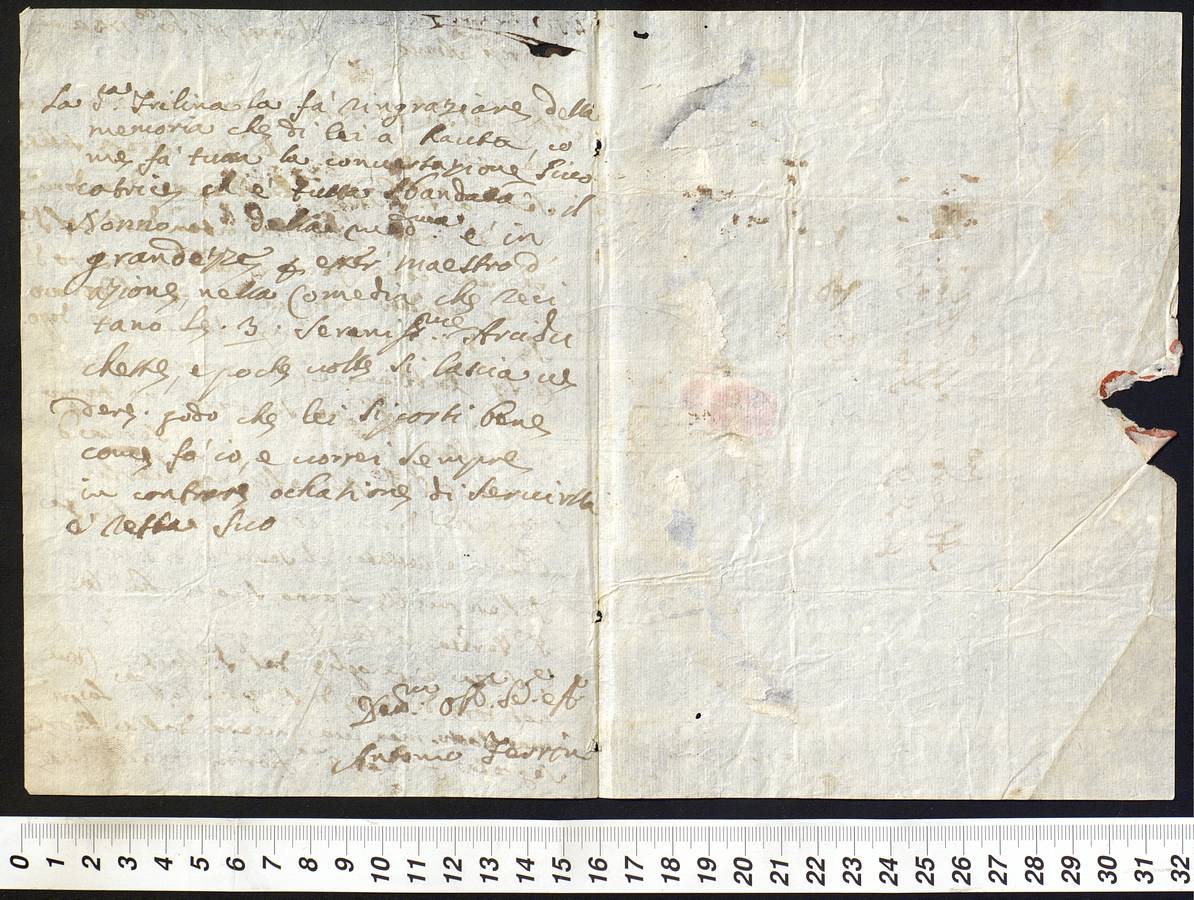 La S.ra Frilina la fá ringraziare della
memoria che di lei a hauuta, co
me fá tutta la conuersazione Gioo
catrice, ch é tutta sbandata. il
Nonno della med.ma é in
grandezze p esser maestro d
azione nella Comedia che reci
tano le. 3. Sereniss.me Arcidu
chesse, e poche uolte si lascia ue
dere. godo che lei si porti bene
come fá io, e uorrei sempre
in contrare ochazione di seruirlla
é resta suo
Deu.mo Obb.mo Se.re eff
Antonio
0 1 2 3 4 5 6 7 8 9 10 11 12 13 14 15 16 17 18 19 20 21 22 23 24 25 26 27 28 29 30 31 32